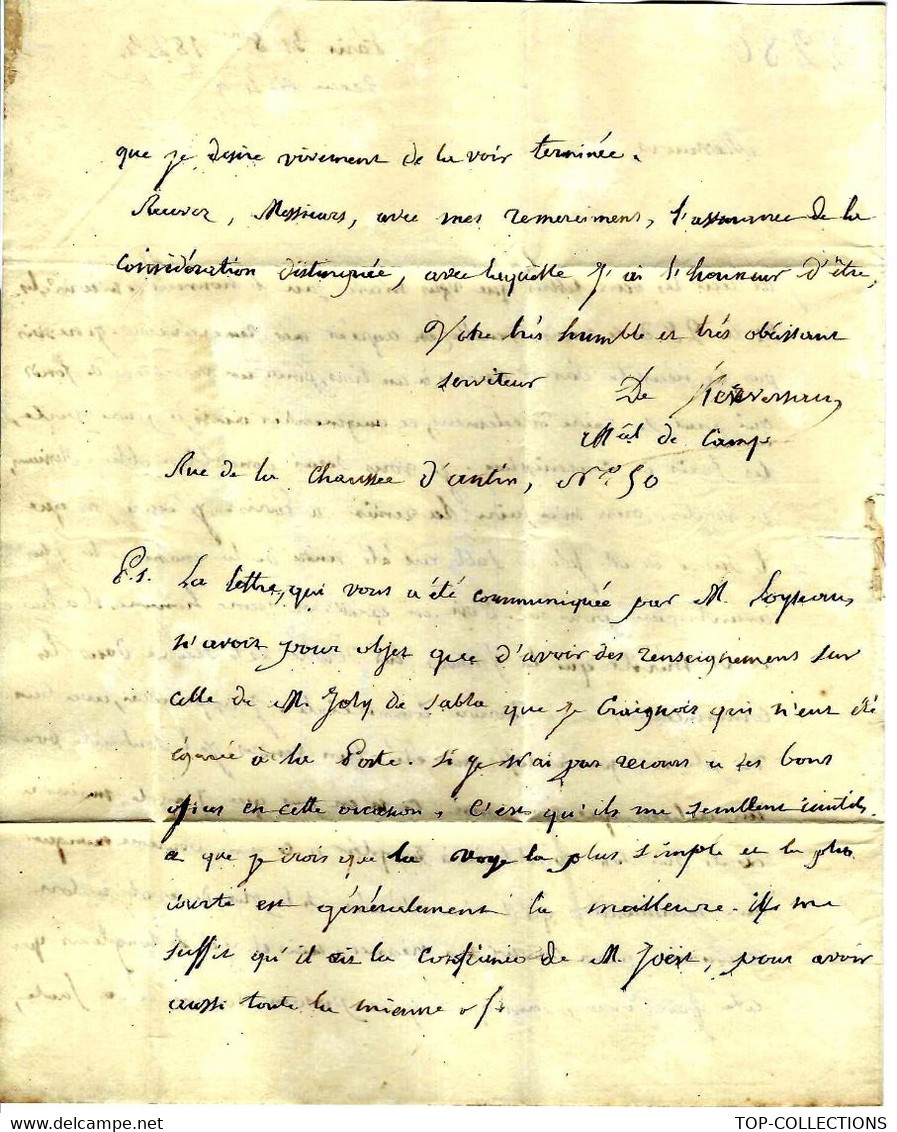 que je desire vivement de la voir terminée.
Recevez, Messieurs, avec mes remerciments, l'assurance de la
Considération distinguée, avec laquelle j'ai l'honneur d'être,
Votre très humble et très obéissant
serviteur
De
Mal de Camp
Rue de la Chaussée d'antin, No. 50
P.S. La lettre, qui vous a été communiquée par M.
n'avoit pour objet que d'avoir des renseignements sur
celle de M. Joly de Sabla que je Craignois qui n'eut été
égarée à la Poste. Si je n'ai pas recours a ses bons
offices en cette occasion, C'est qu'ils me semblent inutils
et que je crois que la voye la plus simple et la plus
courte est généralement la meilleure. Il me
suffit qu'il ait la Confiance de M. , pour avoir
aussi toute la mienne
TOP-COLLECTIONS